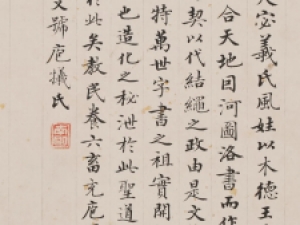 宓羲氏風姓以木德王
合天地因河圖洛書而作
契以代結繩之政由是文
特萬世字書之祖實開
也造化之秘泄於此聖道
於此矣教民養六畜充庖
號庖犧氏